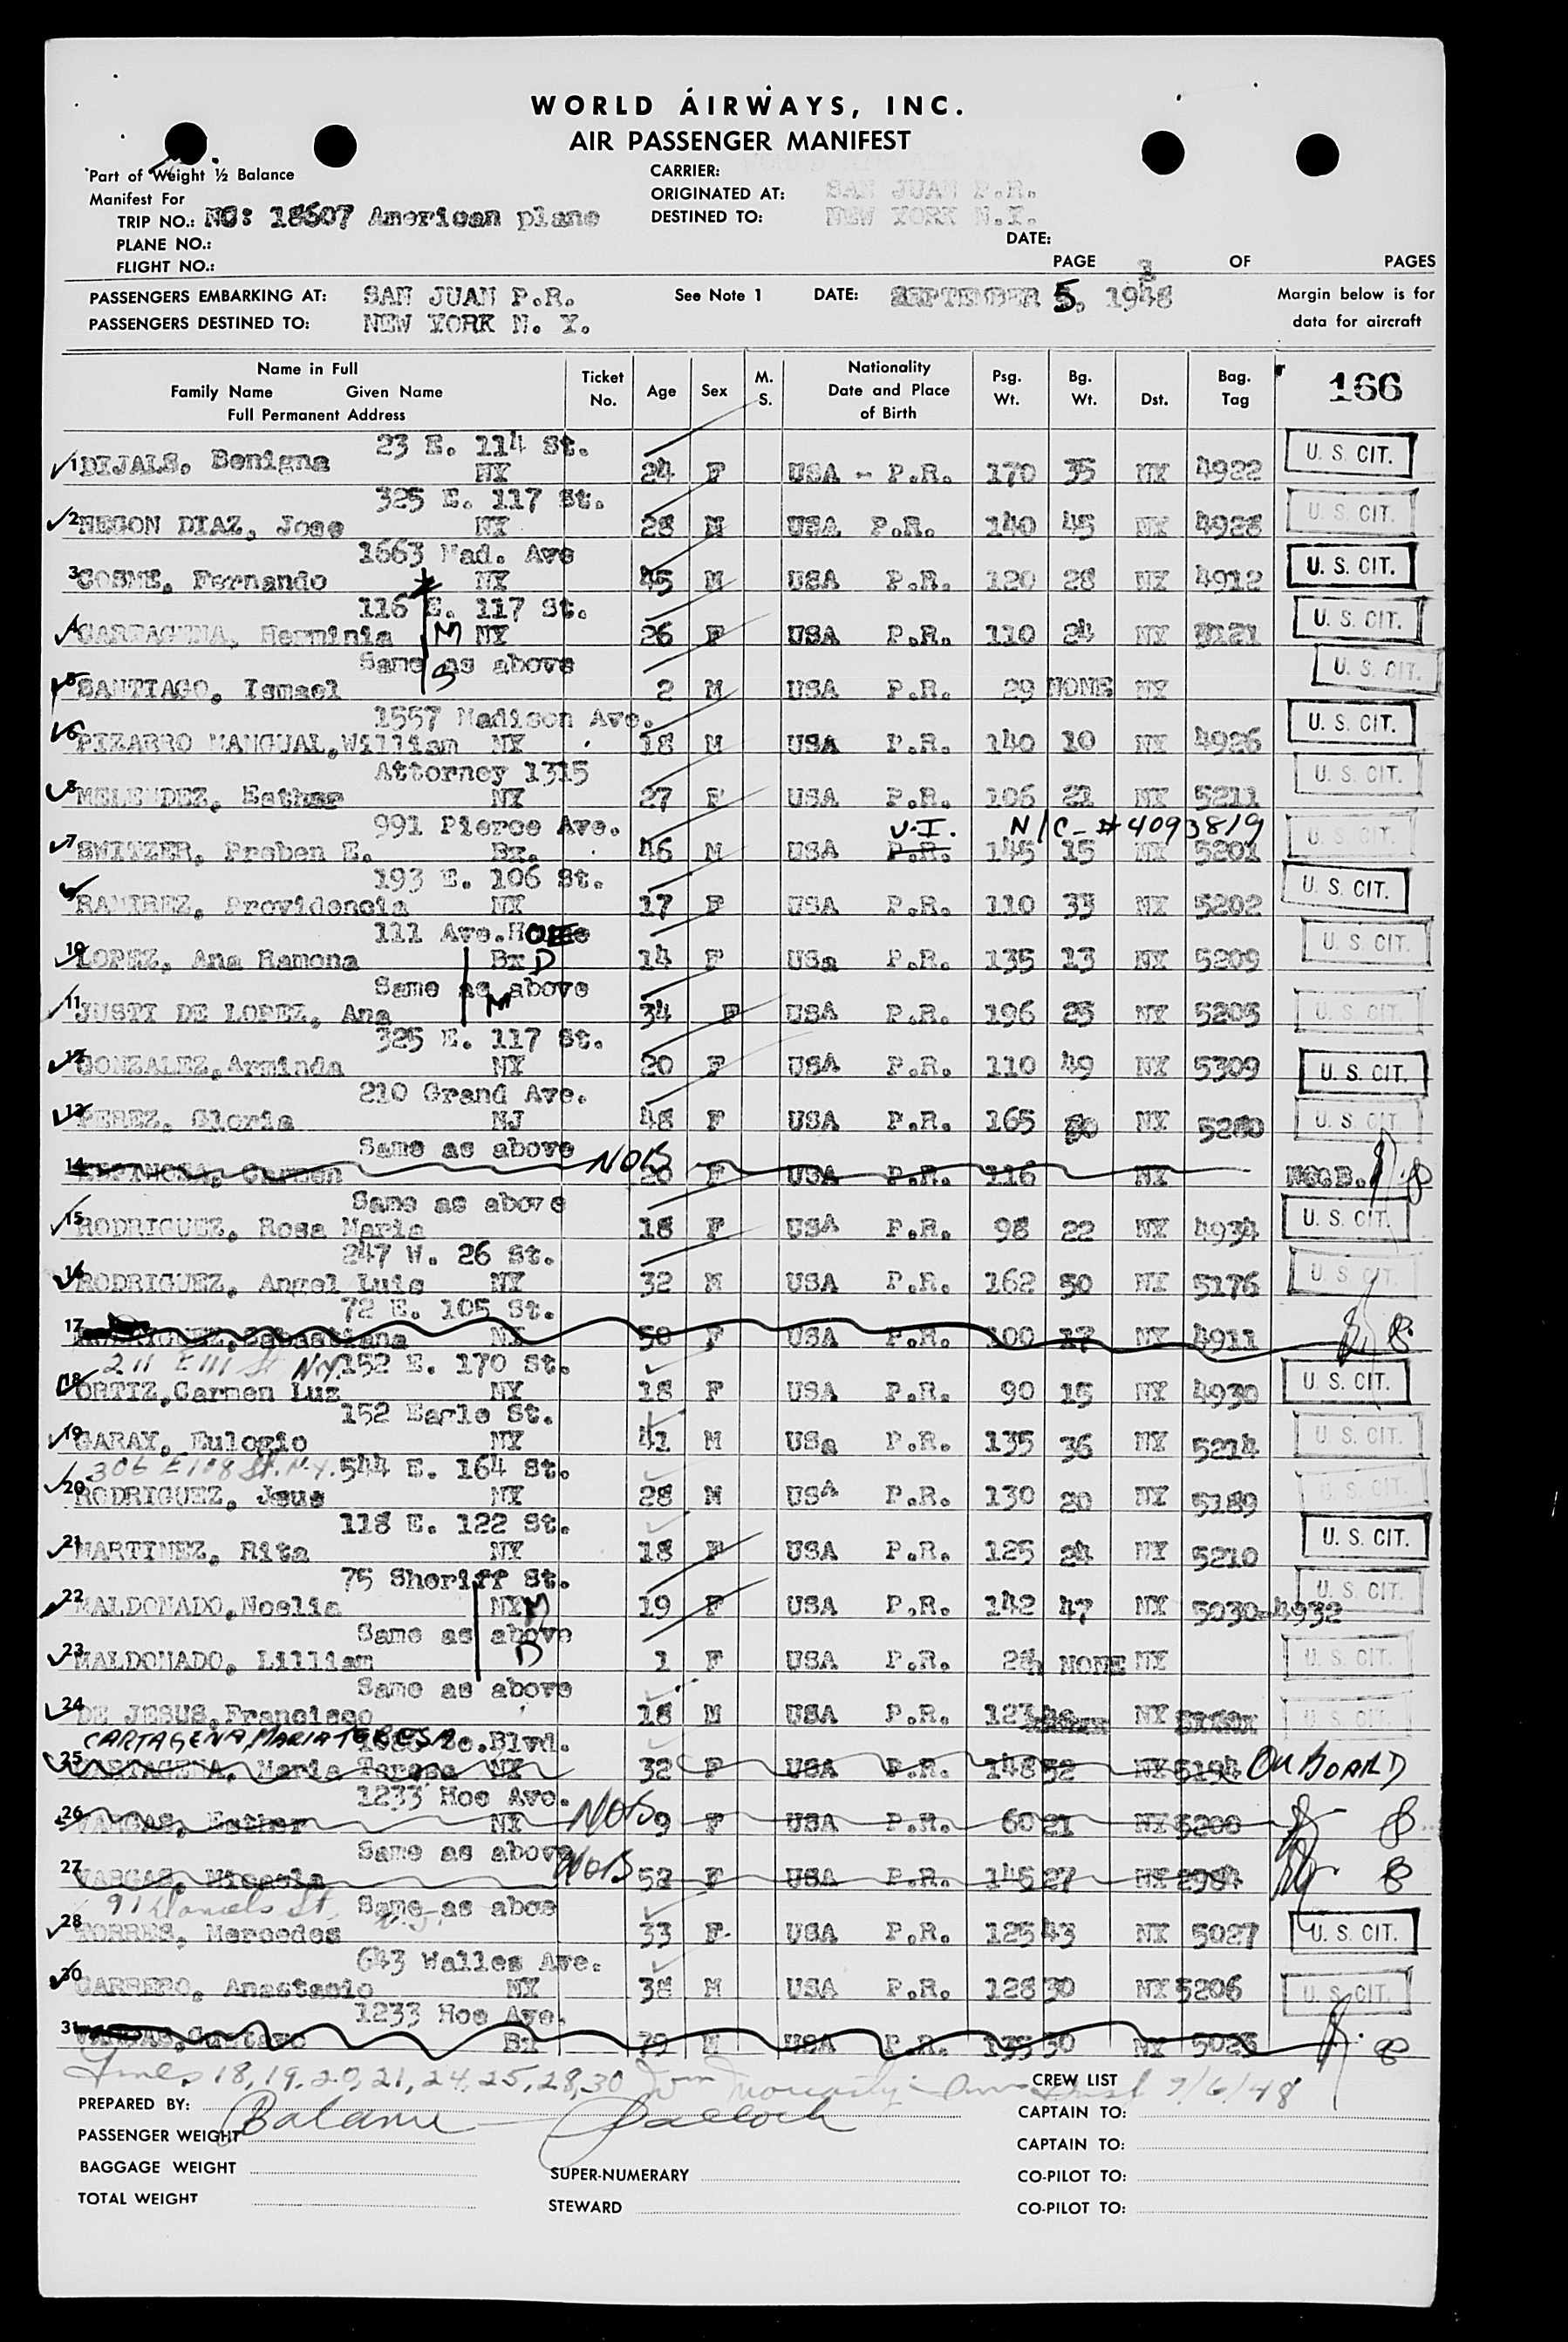 WORLD AIRWAYS, INC.
AIR PASSENGER MANIFEST
Part of Weight ½ Balance
Manifest For
TRIP NO.: NO: 18607 American plane
PLANE NO.:
FLIGHT NO.:
CARRIER:
ORIGINATED AT: SAN JUAN P.R.
DESTINED TO: NEW YORK N.Y.
DATE:
PAGE OF PAGES
PASSENGERS EMBARKING AT: SAN JUAN P.R. See Note 1 DATE: SEPTEMBER 5, 1948 Margin below is for
PASSENGERS DESTINED TO: NEW YORK N. Y. data for aircraft
Name in Full Ticket No. Age Sex M. S. Nationality Psg. Wt. Bg. Wt. Dst. Bag. Tag 166
Family Name Given Name Date and Place
Full Permanent Address of Birth
23 E. 114 St. U. S. CIT.
1 DIJALS, Benigna NY 24 F USA - P.R. 170 35 NY 4922
325 E. 117 St. U. S. CIT.
2 NEGON DIAZ, Jose NY 28 M USA P.R. 140 45 NY 4928
1663 Mad. Ave U. S. CIT.
3 COSME, Fernando NY 45 M USA P.R. 120 28 NY 4912
116 E. 117 St. U. S. CIT.
4 CARTAGENA, Herminia M NY 26 F USA P.R. 110 24 NY 5121
Same as above U. S. CIT.
5 SANTIAGO, Ismael S 2 M USA P.R. 29 NONE NY
1557 Madison Ave. U. S. CIT.
6 PIZARRO MANGUAL, William NY 18 M USA P.R. 140 10 NY 4926
Attorney 1315 U. S. CIT.
8 MELENDEZ, Esther NY 27 F USA P.R. 106 21 NY 5211
991 Pierce Ave. V.I. N/C-#4093819 U. S. CIT.
7 SWITZER, Preben E. Bx. 46 M USA P.R. 145 15 NY 5201
193 E. 106 St. U. S. CIT.
9 RAMIREZ, Providencia NY 17 F USA P.R. 110 33 NY 5202
111 Ave. U. S. CIT.
10 LOPEZ, Ana Ramona Bx D 14 F USa P.R. 135 13 NY 5209
Same as above U. S. CIT.
11 JUSTI DE LOPEZ, Ana M 34 F USA P.R. 196 25 NY 5205
325 E. 117 St.
12 GONZALEZ, Arminda NY 20 F USA P.R. 110 49 NY 5309 U. S. CIT.
210 Grand Ave. U. S. CIT.
13 PEREZ, Gloria NJ 48 F USA P.R. 165 NY 5280
Same as above
14 ESPINOSA, Carmen NOB 20 F USA P.R. 116 NY Not B.
Same as above U. S. CIT.
15 RODRIGUEZ, Rosa Maria 18 F USA P.R. 98 22 NY 4934
247 W. 26 St. U. S. CIT.
16 RODRIGUEZ, Angel Luis NY 32 M USA P.R. 162 50 NY 5176
72 E. 105 St.
17 RODRIGUEZ, Sebastiana NY 50 F USA P.R. 100 17 NY 4911
211 E 111 St NY. 152 E. 170 St. U. S. CIT.
18 ORTIZ, Carmen Luz NY 18 F USA P.R. 90 15 NY 4930
152 Earle St. U. S. CIT.
19 GARAY, Eulogio NY 41 M USa P.R. 135 36 NY 5214
306 E 108 St. N.Y. 544 E. 164 St. U. S. CIT.
20 RODRIGUEZ, Jsus NY 28 M USA P.R. 130 20 NY 5189
118 E. 122 St. U. S. CIT.
21 MARTINEZ, Rita NY 18 F USA P.R. 125 24 NY 5210
75 Sheriff St. U. S. CIT.
22 MALDONADO, Noelia NY M 19 F USA P.R. 142 47 NY 5030-4932
Same as above U. S. CIT.
23 MALDONADO, Lilliam D 1 F USA P.R. 24 NONE NY
Same as above U. S. CIT.
24 DE JESUS, Francisco 18 M USA P.R. 123 NY
CARTAGENA, MARIA TERESA So. Blvd.
25 CARTAGENA, Maria Teresa NY 32 F USA P.R. 148 52 NY 5194 ON BOARD
1233 Hoe Ave.
26 VARGAS, Esther NY NOB 9 F USA P.R. 60 21 NY 5200
Same as above
27 VARGAS, Micaela NOB 52 F USA P.R. 146 27 NY 2984
91 Daniels St. N.J. Same as aboe
28 TORRES, Mercedes 33 F USA P.R. 125 43 NY 5027 U. S. CIT.
643 Walles Ave.
30 CARRERO, Anastasio NY 38 M USA P.R. 128 30 NY 5206 U. S. CIT.
1233 Hoe Ave.
31 VARGAS, Gustavo Bx 79 M USA P.R. 135 30 NY 5023
Lines 18, 19, 20, 21, 24, 25, 28, 30 Wm 9/6/48
CREW LIST
PREPARED BY: CAPTAIN TO:
PASSENGER WEIGHT CAPTAIN TO:
BAGGAGE WEIGHT SUPER-NUMERARY CO-PILOT TO:
TOTAL WEIGHT STEWARD CO-PILOT TO: